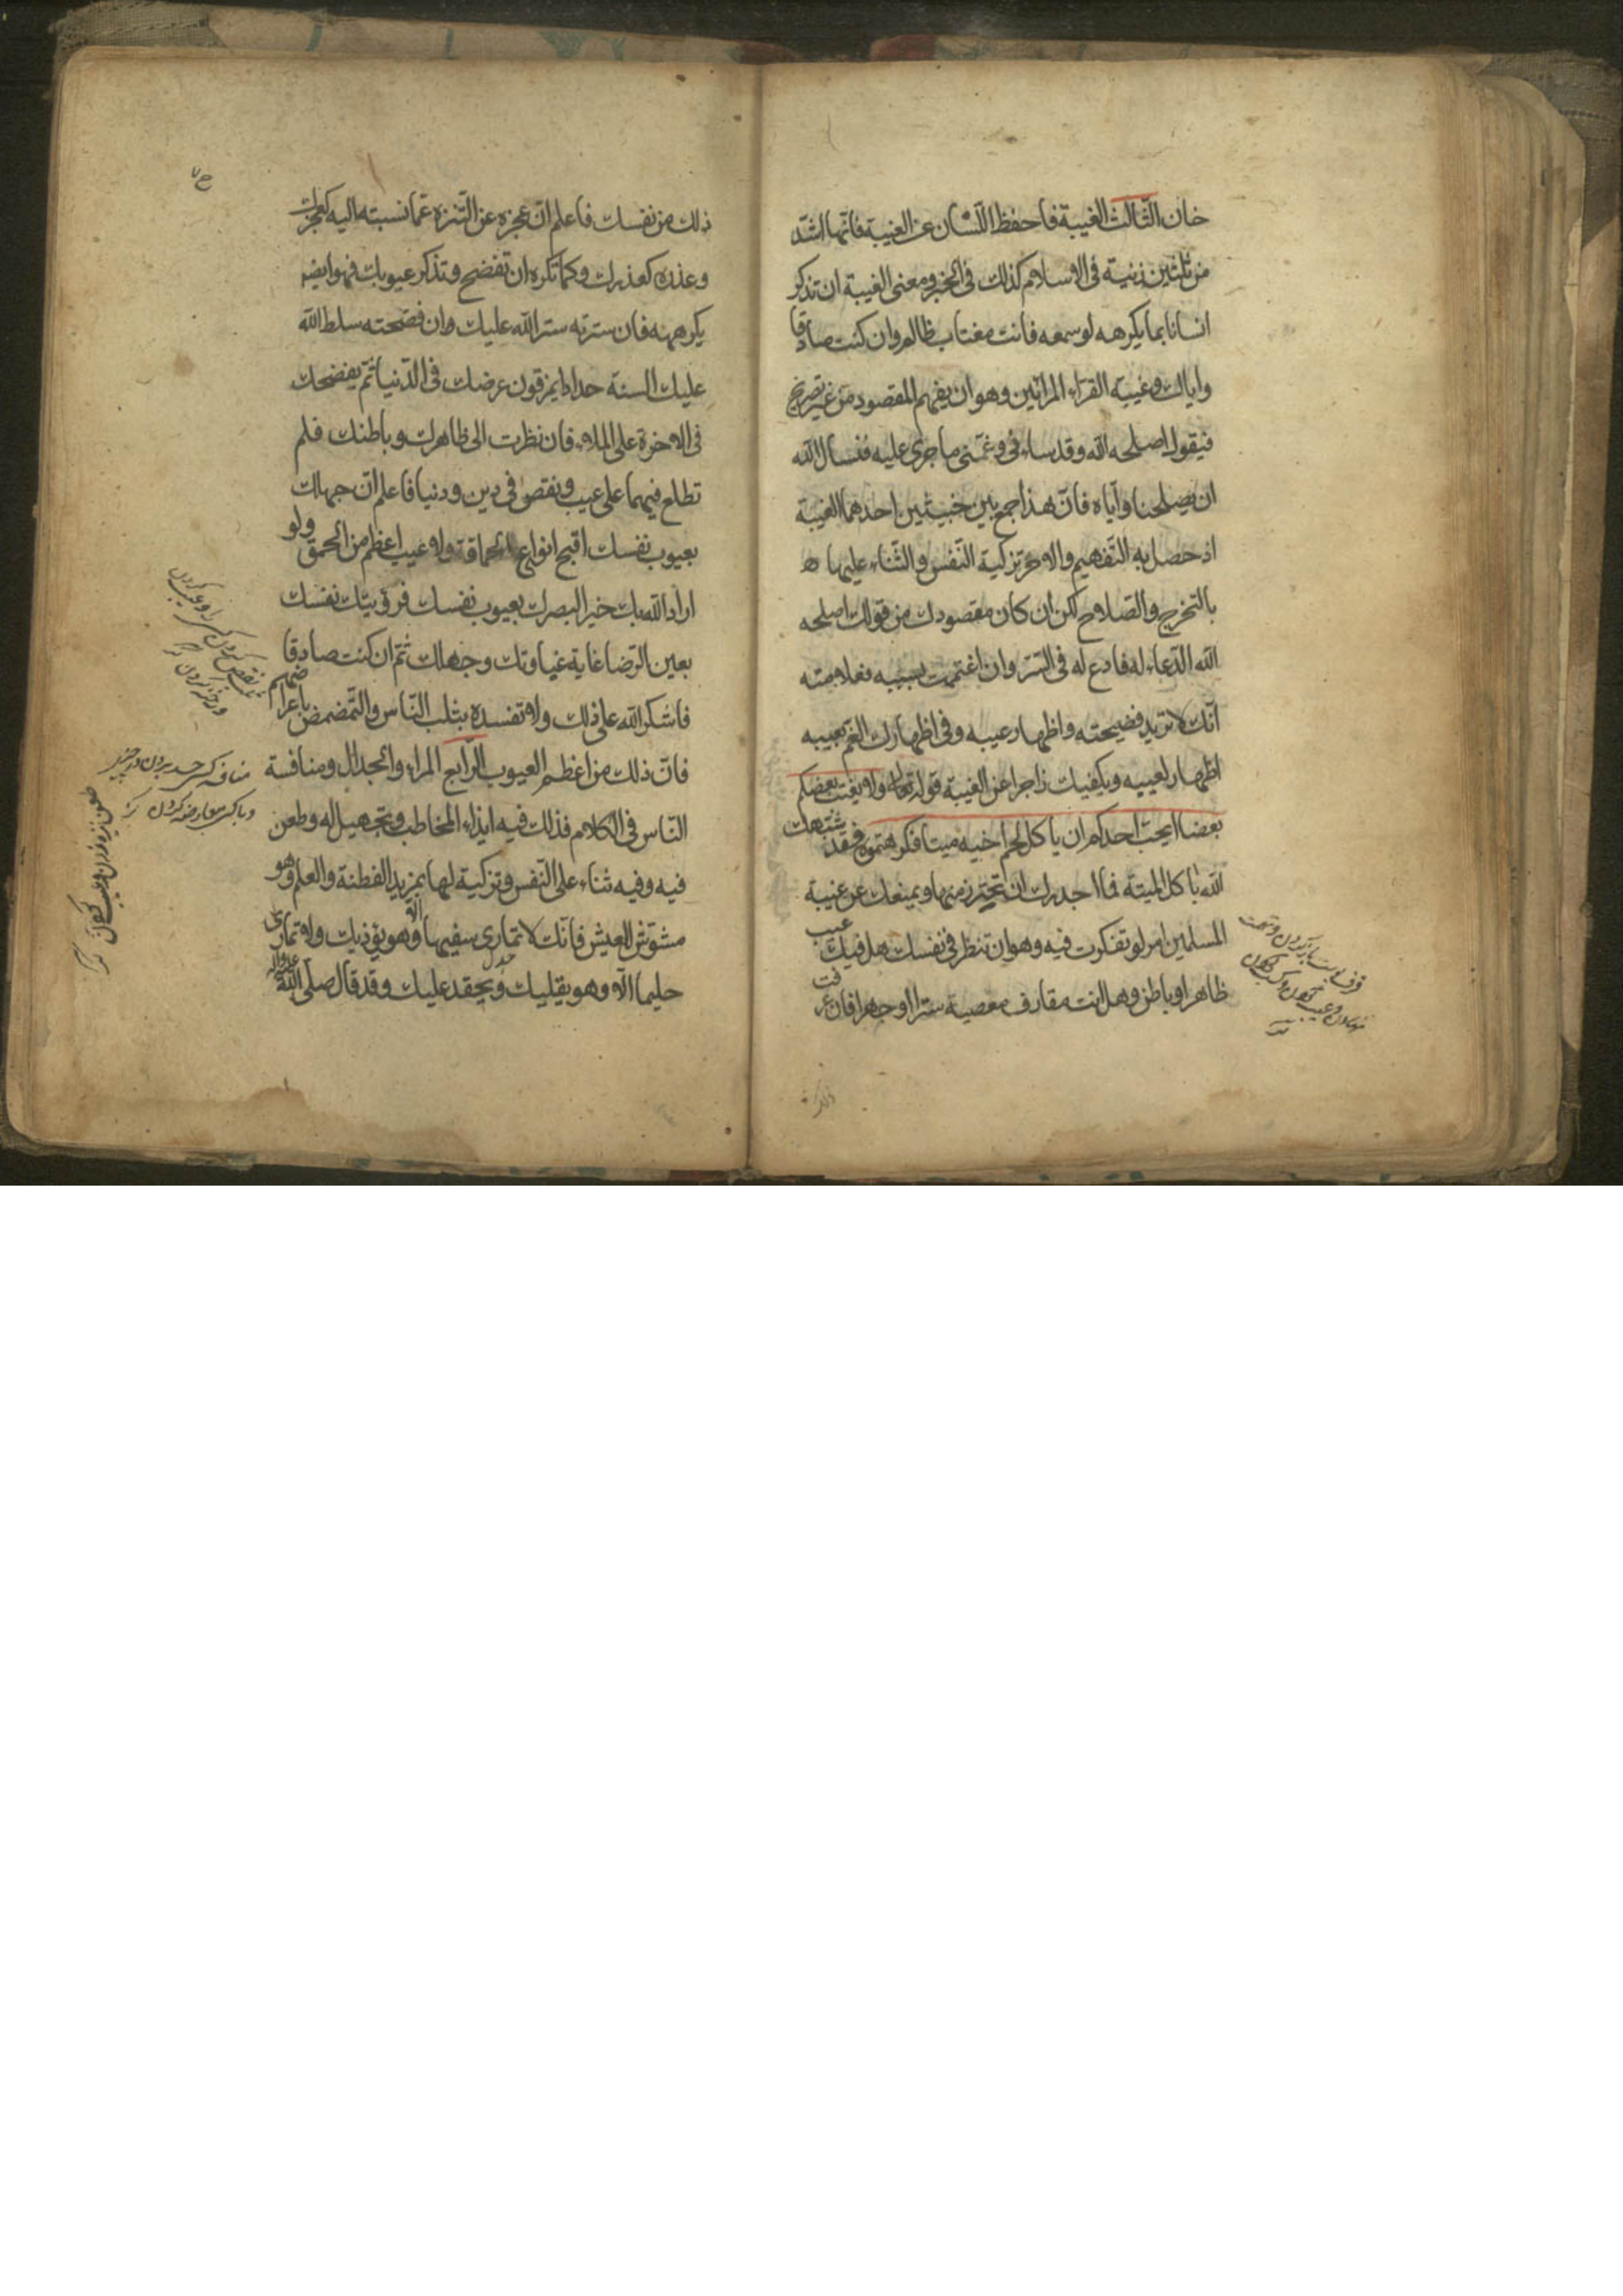 خان الثّالث الغيبة فاحفظ اللّسان عن الغيبة فانّها اشدّ
من ثلثين زنية فى الاسلام كذلك فى الخبر ومعنى الغيبة ان تذكر
انسانا بما يكرهه لو سمعه فانت مغتاب ظالم وان كنت صادقا
واياك وغيبة القراء المرائين وهو ان يفهم المقصود من غير تصريح
فيقول اصلحه الله وقد ساءنى وغمّنى ما جرى عليه فنسال الله
ان يصلحنا وايّاه فانّ هذا جمع بين خبيثين احدهما الغيبة
اذ حصل به التّفهيم والاخر تزكية النّفس والثّناء عليها
بالتخرج والصّلاح لكن ان كان مقصودك من قولك اصلحه
الله الدّعاء له فادع له فى السّرّ وان اغتممت بسببه فعلامته
انّك لا تريد فضيحته واظهار عيبه وفى اظهارك الغمّ بعيبه
اظهار لعيبه ويكفيك زاجرا عن الغيبة قوله تعالى ولا يغتب بعضكم
بعضا ايحبّ احدكم ان ياكل لحم اخيه ميتا فكرهتموه فقد شبّهك
الله باكل الميتة فما اجدرك ان تحترز منها ويمنعك عن غيبة
المسلمين امر لو تفكرت فيه وهو ان تنظر فى نفسك هل فيك عيب
ظاهر او باطن وهل انت مقارف معصية سترا او جهرا فان عرفت
ذلك
ذلك من نفسك فاعلم انّ عجزه عن التّنزه عمّا نسبته اليه كعجزك
وعذره كعذرك وكما تكره ان تفضح وتذكر عيوبك فهو ايضا
يكرهه فان سترته ستر الله عليك وان فضحته سلط الله
عليك السنة حدادا يمزقون عرضك فى الدّنيا ثمّ يفضحك
فى الاخرة على الملاء فان نظرت الى ظاهرك وباطنك فلم
تطلع فيهما على عيب ونقص فى دين ودنيا فاعلم انّ جهلك
بعيوب نفسك اقبح انواع الحماقة ولا عيب اعظم من الحمق ولو
اراد الله بك خيرا لبصرك بعيوب نفسك فرؤيتك نفسك
بعين الرّضا غاية غباوتك وجهلك ثمّ ان كنت صادقا
فاشكر الله على ذلك ولا تفسده بثلب النّاس والتّمضمض باعراضهم
فانّ ذلك من اعظم العيوب الرّابع المراء والجدال ومنافسة
النّاس فى الكلام فذلك فيه ايذاء المخاطب وتجهيل له وطعن
فيه وفيه ثناء على النّفس وتزكية لها بمزيد الفطنة والعلم وهو
مشوّش العيش فانّك لا تمارى سفيها الّا وهو يؤذيك ولا تمارى
حليما الّا وهو يقليك ويحقد عليك وقد قال صلّى الله عليه وآله